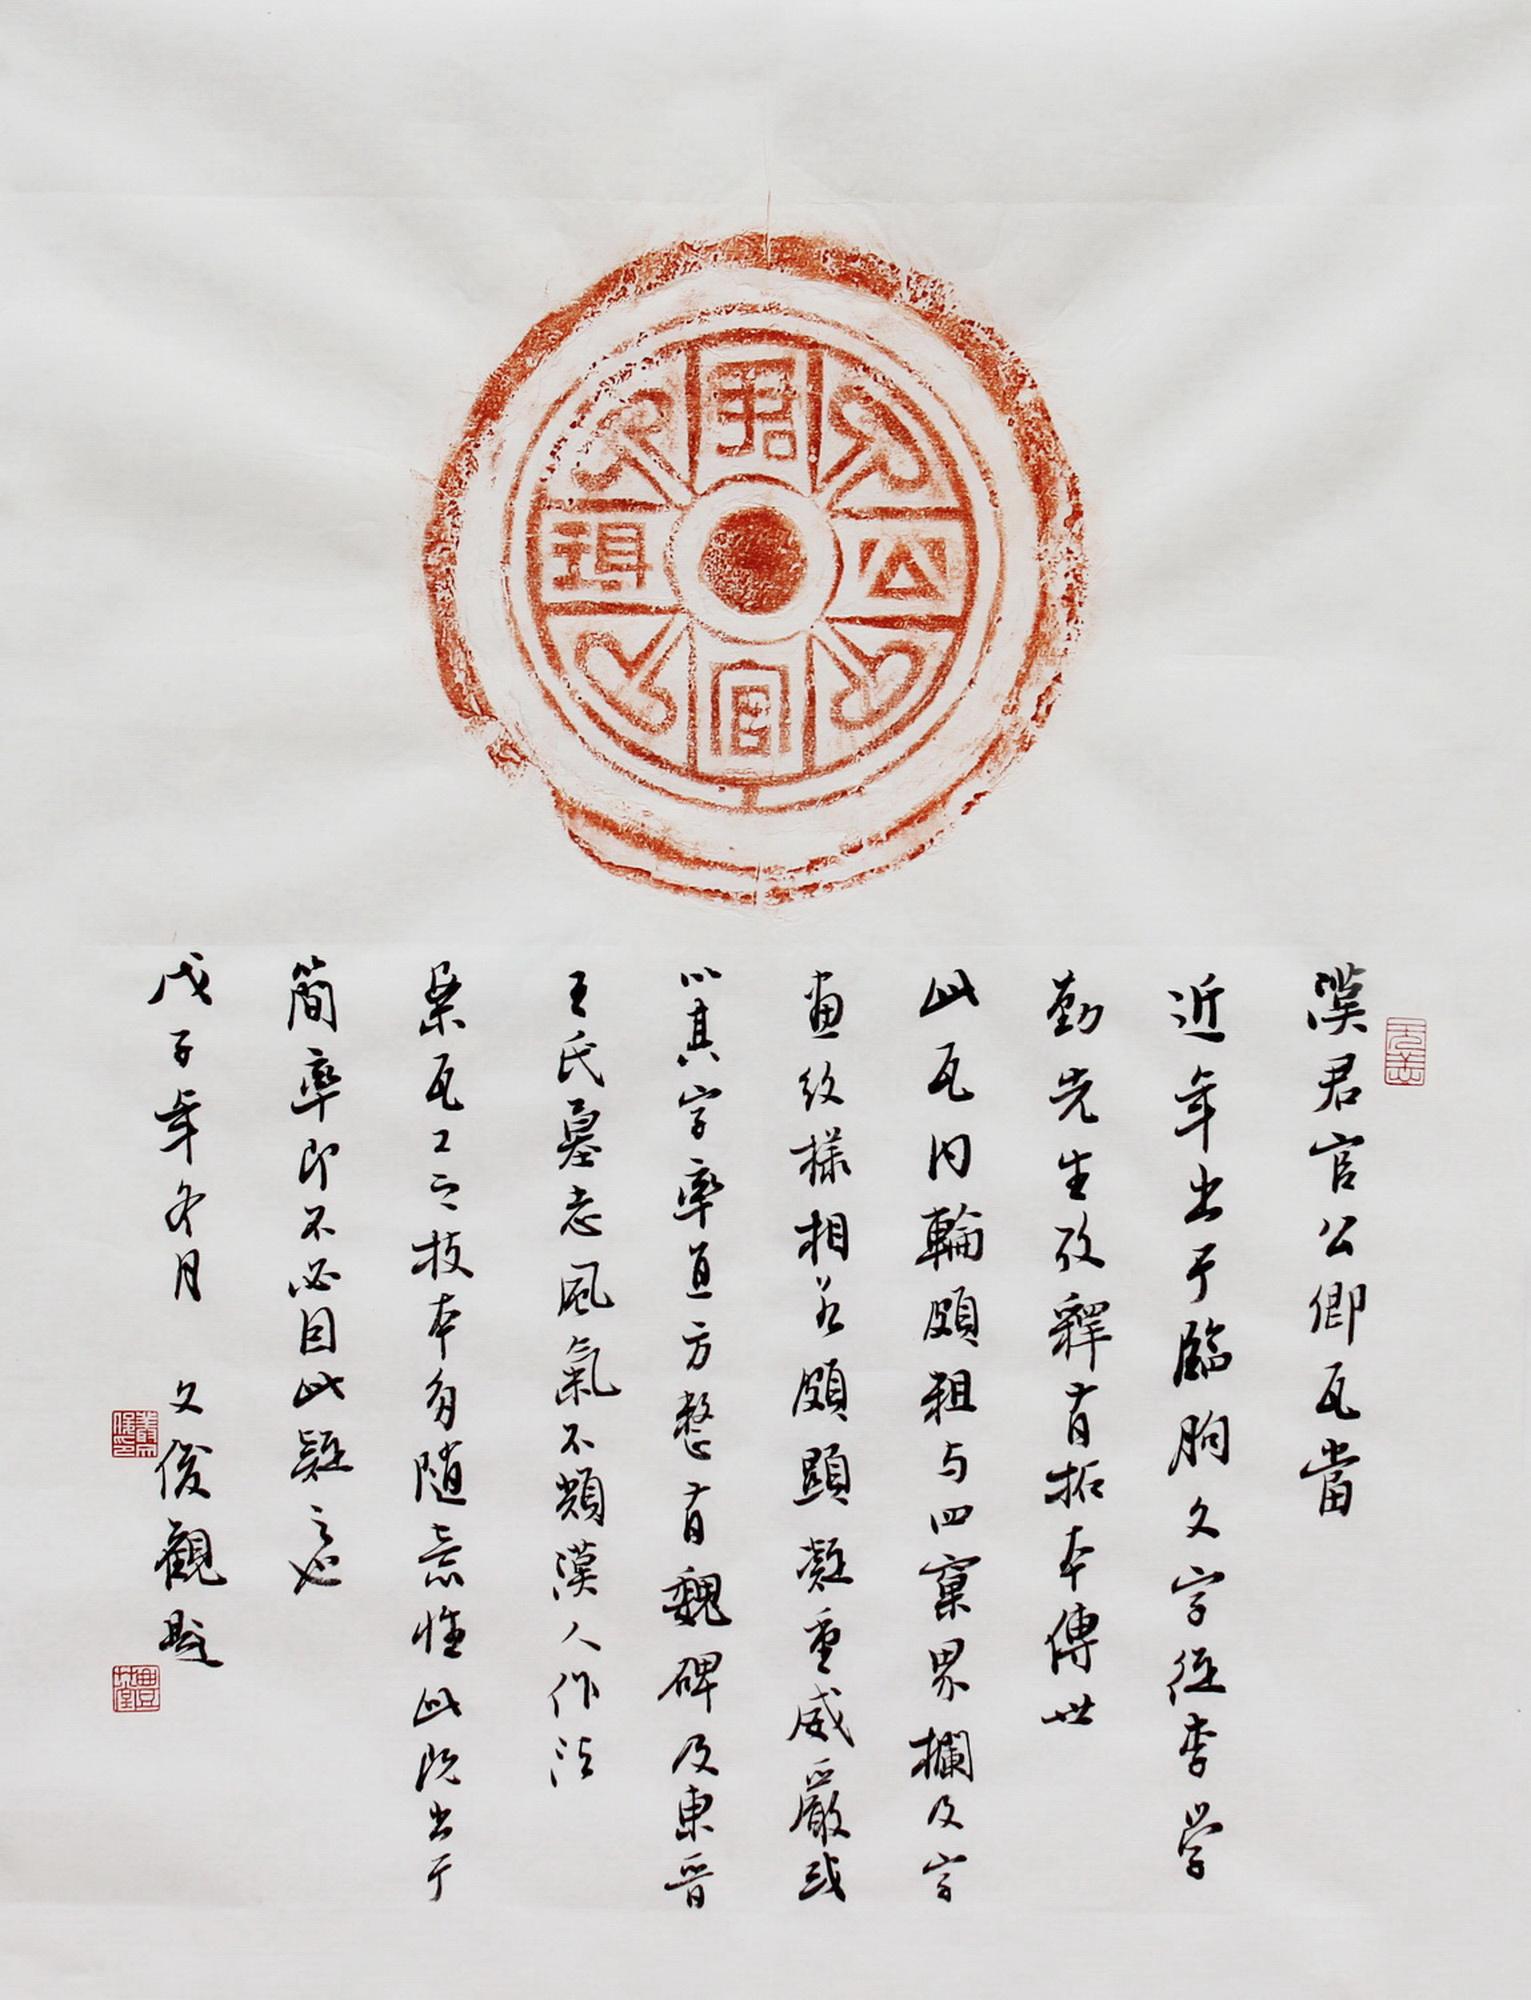 漢君官公卿瓦當
近年出于臨朐文字從李学
勤先生攷釋有拓本傳世
此瓦内輪頗粗与四窠界欄及字
畫纹樣相若頗顯凝重威嚴或
以其字率直方整有魏碑及東晋
王氏墓志風氣不類漢人作法
桑瓦工之技本多随意性此既出于
簡率即不必因此疑之也
戊子年冬月 文俊觀題